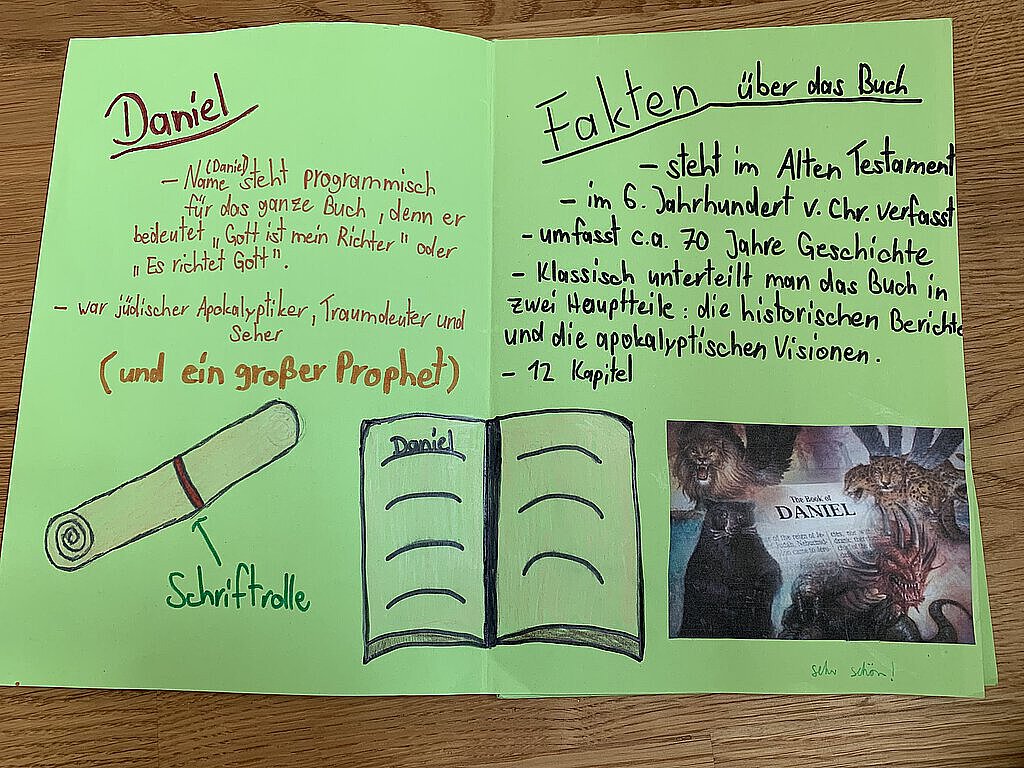 Daniel
(Daniel)
- Name steht programmisch
für das ganze Buch, denn er
bedeutet „Gott ist mein Richter" oder
„Es richtet Gott".
- war jüdischer Apokalyptiker, Traumdeuter und
Seher
(und ein großer Prophet)
Schriftrolle
Daniel
Fakten über das Buch
- steht im Alten Testament
- im 6. Jahrhundert v. Chr. verfasst
- umfasst c.a. 70 Jahre Geschichte
- Klassisch unterteilt man das Buch in
zwei Hauptteile: die historischen Berichte
und die apokalyptischen Visionen.
- 12 Kapitel
The Book of
DANIEL
of the reign of
sehr schön!